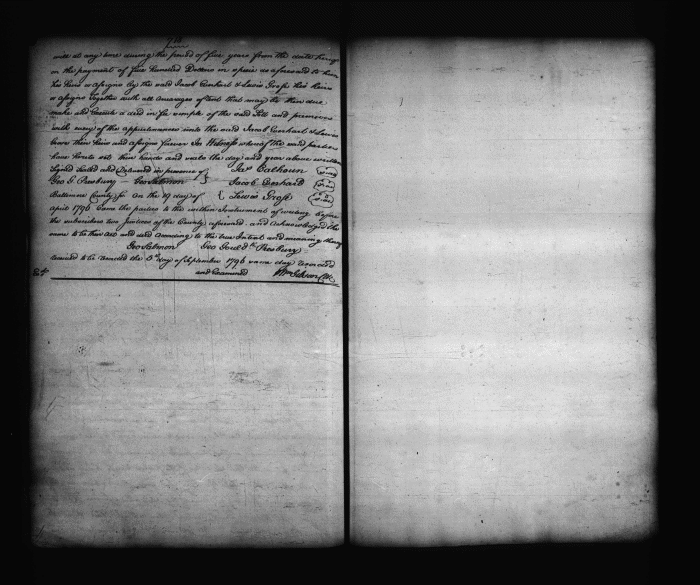 will at any time during the period of five years from the date hereof
on the payment of five hundred Dollars in specie as aforesaid to him
his heirs or assigns by the said Jacob Eenhart & Lewis Gross their heirs
or assigns together with all arrearages of rent that may be then due
make and execute a deed in fee simple of the said Lott and premises
with every of the appurtenances unto the said Jacob Eenhart & Lewis
Gross their heirs and assigns forever In Witness whereof the said parties
have hereto set their hands and seals the day and year above written
Signed Sealed and Delivered in presence of } Jas Calhoun (seal)
Geo G. Presbury — Geo Salmon } Jacob Eenhard (seal)
Baltimore County Ss. On the 19 day of { Lewis Gross (seal)
April 1796 Came the parties to the within Instrument of writing before
the subscribers two Justices of the County aforesaid and Acknowledged the
same to be their act and deed according to the true Intent and meaning thereof
Geo Salmon Geo Gould Presbury
received to be recorded the 3d day of September 1796 same day recorded
and Examined Wm Gibson Clk